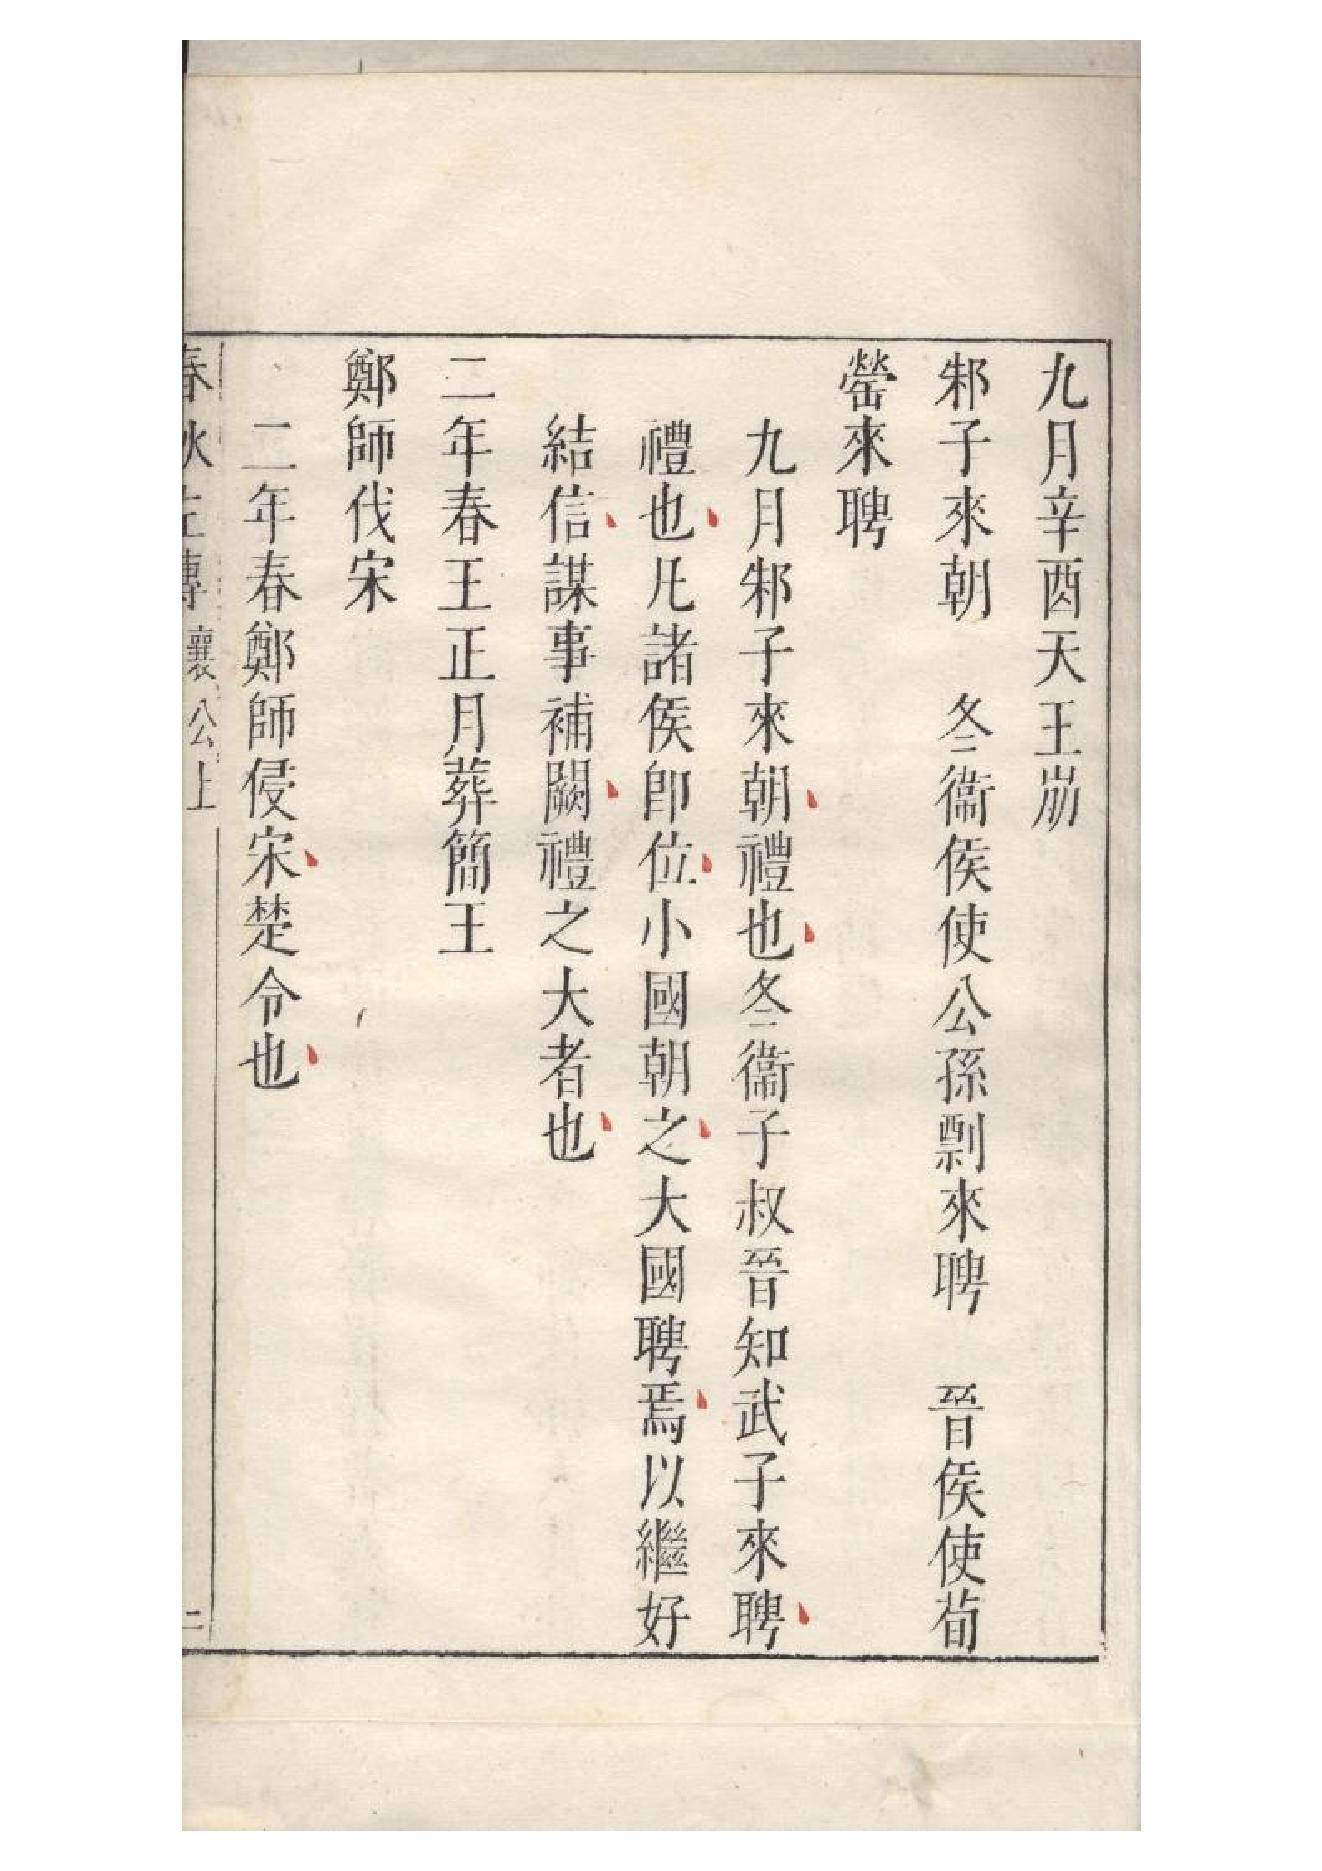 九月辛酉天王崩
邾子來朝　冬衞侯使公孫剽來聘　晉侯使荀
罃來聘
九月邾子來朝禮也冬衞子叔晉知武子來聘
禮也凡諸侯即位小國朝之大國聘焉以繼好
結信謀事補闕禮之大者也
二年春王正月葬簡王
鄭師伐宋
二年春鄭師侵宋楚令也
春秋左傳 襄公上 二